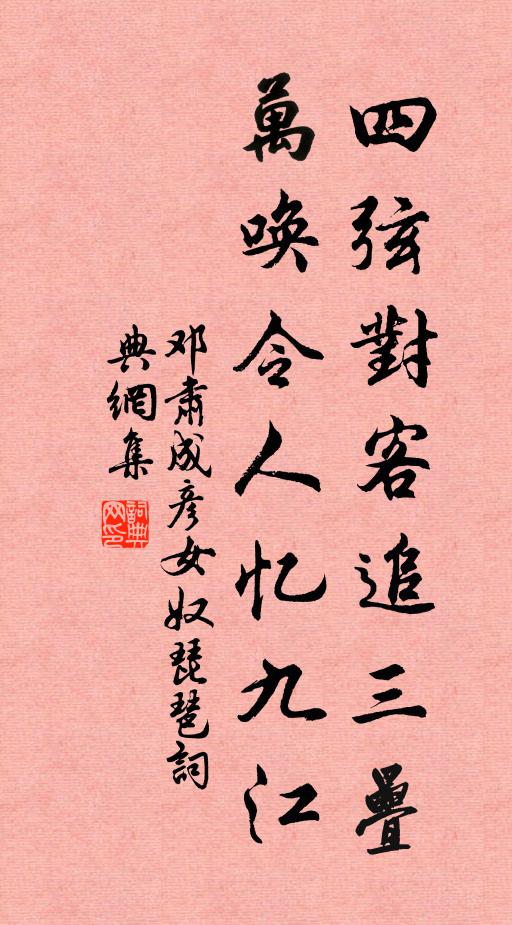 四弦對客追三疊
萬唤令人忆九江
邓肅成彦女奴琵琶詞
典網集
詞典網印